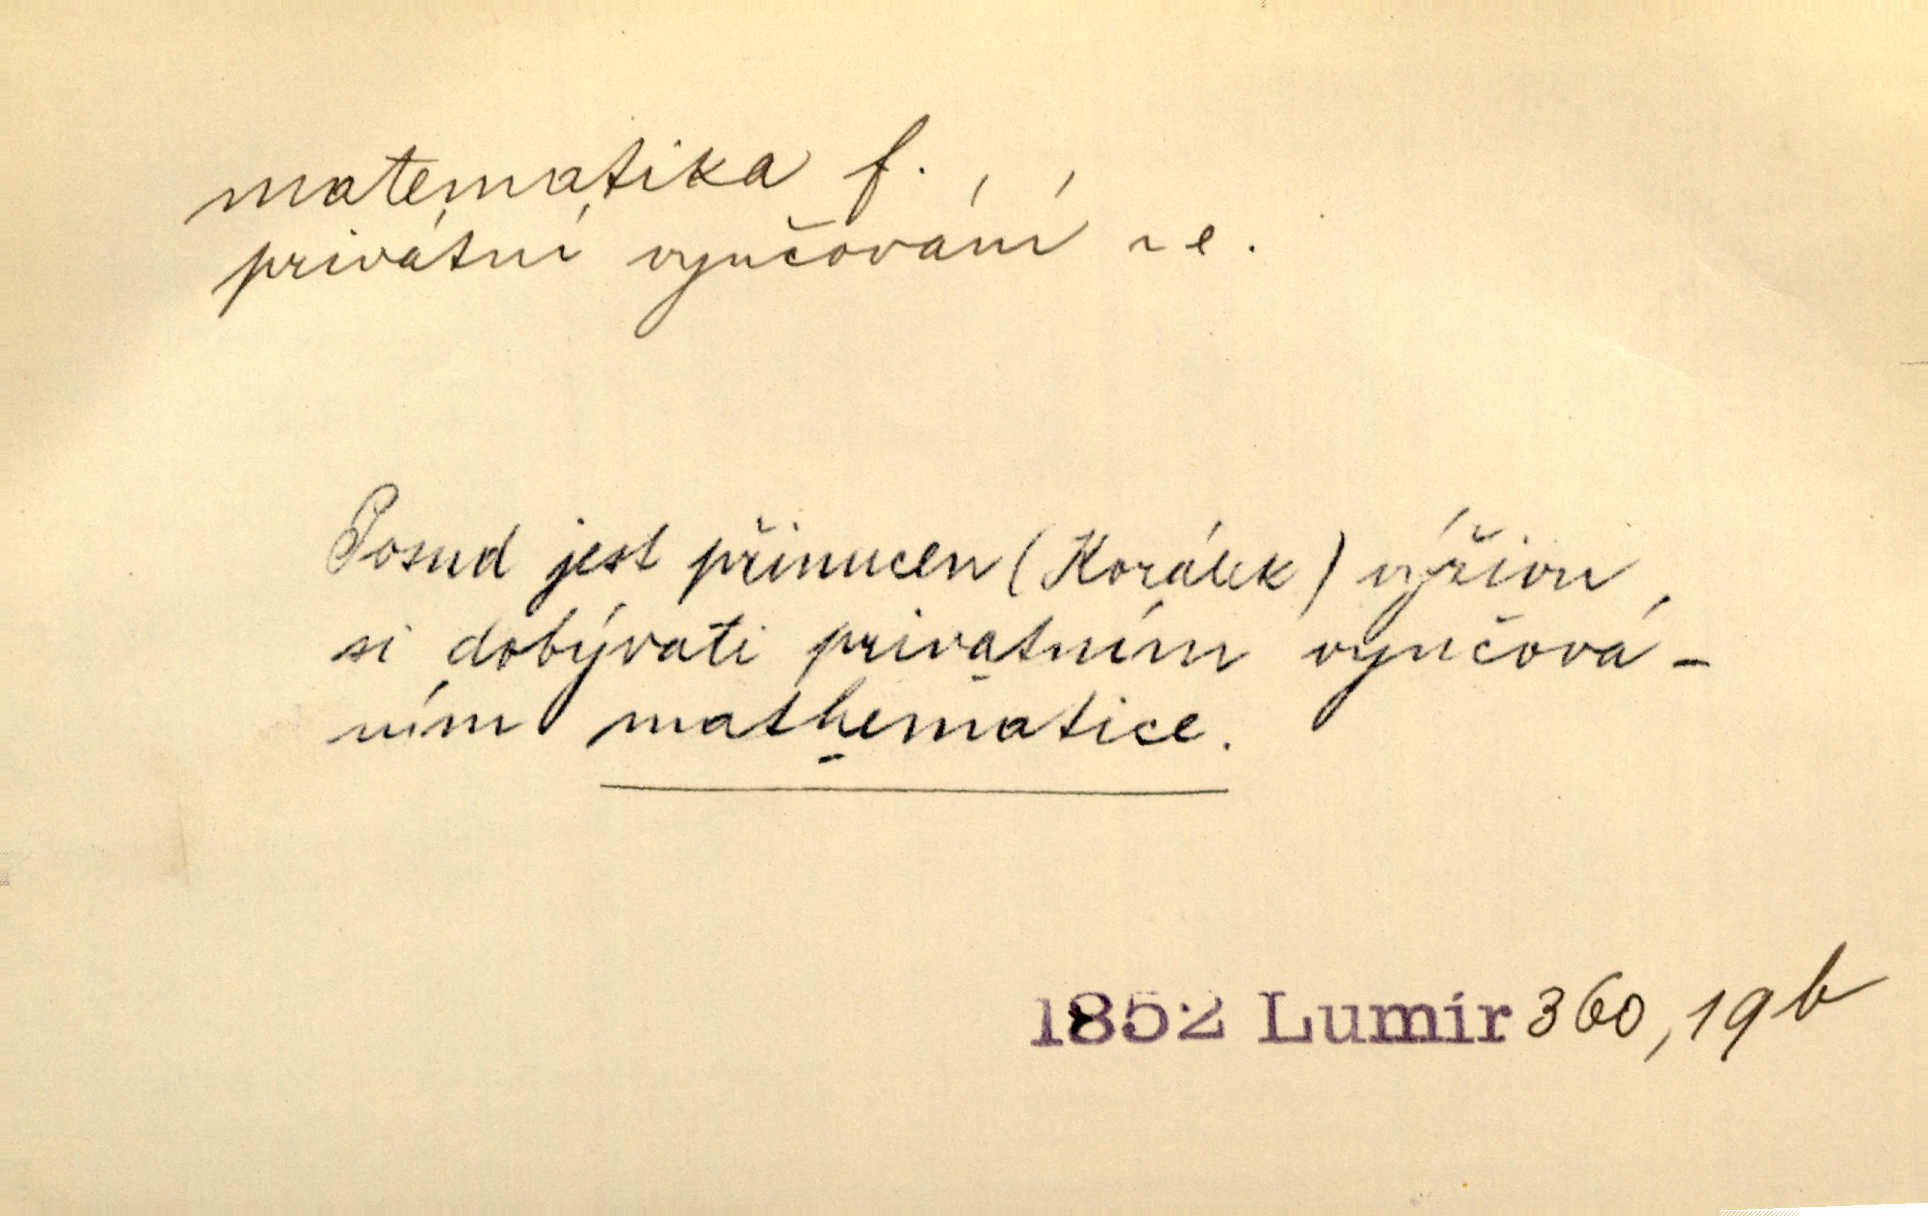 matematika f.
privátní vyučování ~ e.
Posud jest přinucen (Korálek) výživu
si dobývati privatním vyučová-
ním mathematice.
1852 Lumír 360, 19 b